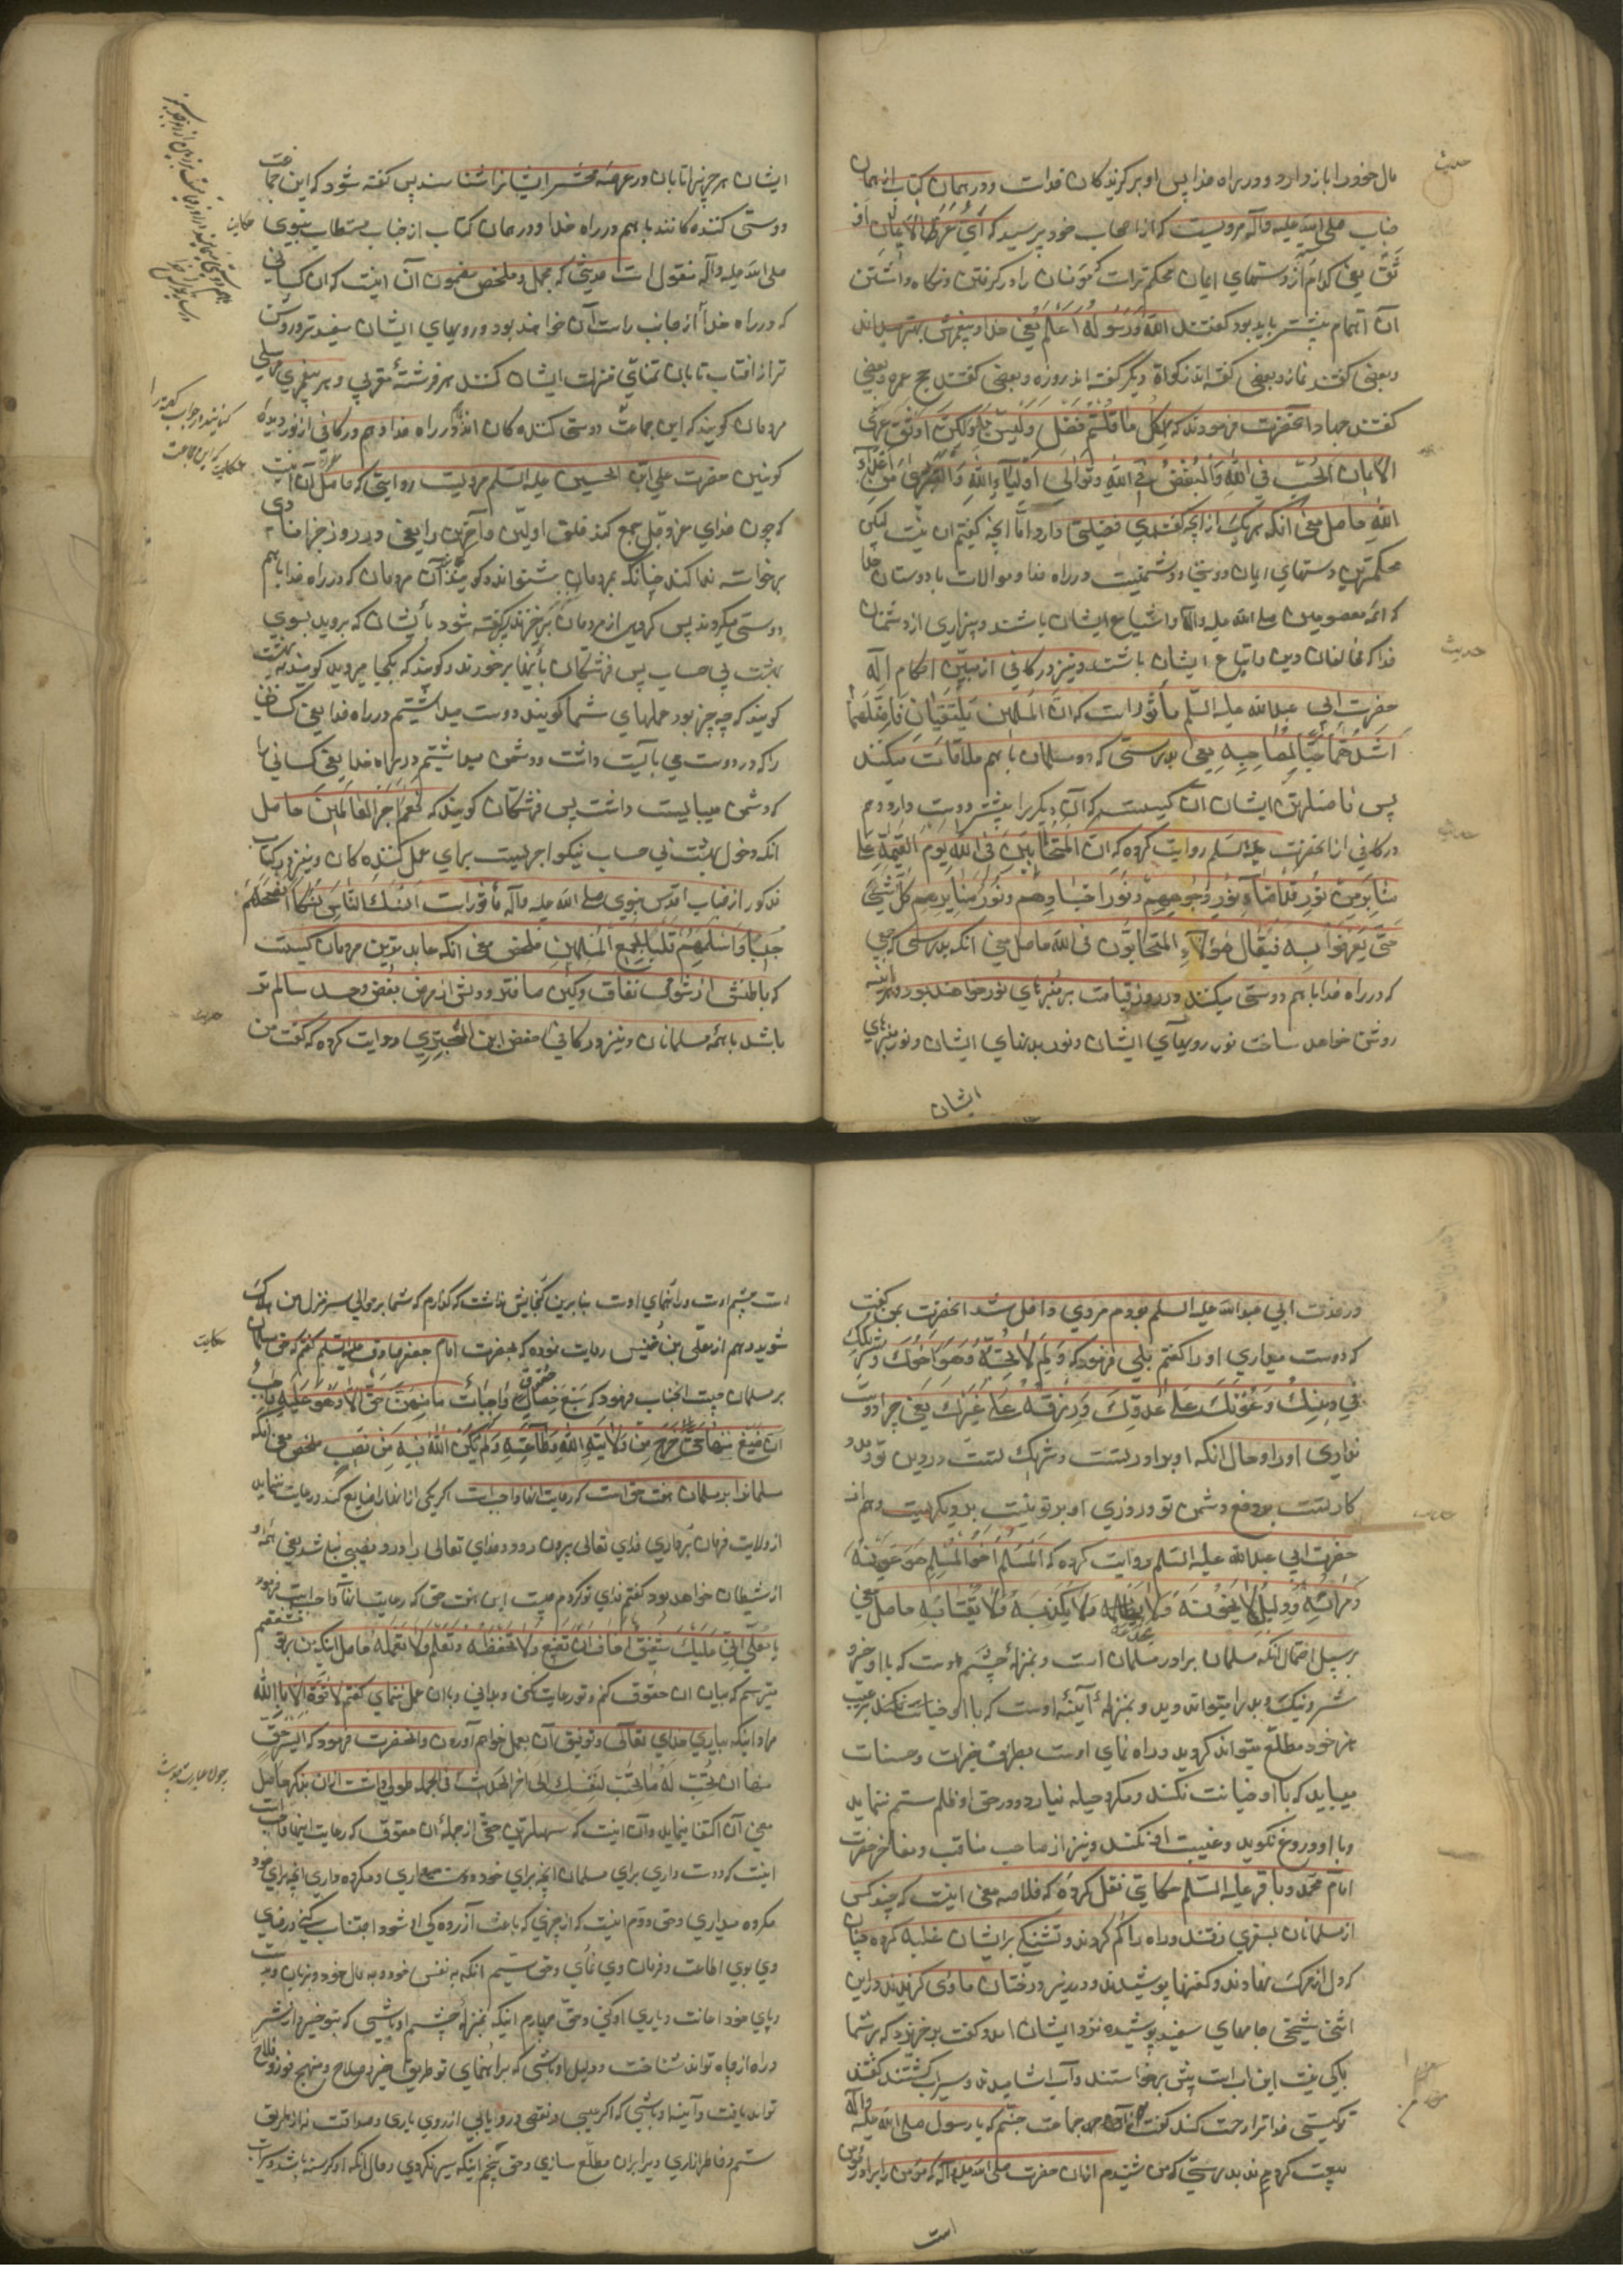 مال خود را باز دارد و در راه خدا پس او برگزیدگان خداست و در همان کتاب از همان
جناب صلی الله علیه وآله مرویست که از اصحاب خود پرسید که أیّ عُری الایمان
یعنی کدام از دستهای ایمان محکم تر است مؤمنان را در گرفتن و نگاه داشتن
آن اهتمام بیشتر باید بود گفتند اللّٰه وَرَسُولُهُ اَعْلَمُ یعنی خدا و پیغمبرش بهتر میدانند
و بعضی گفتند نماز و بعضی گفته اند زکوة و دیگر گفته اند روزه و بعضی گفتند حج عمره و بعضی
گفتند جهاد آنحضرت فرمودند که لِکُلِّ ما قُلْتُمْ فَضْلٌ وَلَیْسَ بِهِ وَلٰکِنَّ اَوْثَقَ عُرَی
الایمان الحُبُّ فِی اللّٰهِ وَالْبُغْضُ فِی اللّٰهِ وَتَوالی اَوْلیآءِ اللّٰهِ وَالتَّبَرّی مِنْ اَعْدآءِ
اللّٰهِ حاصل معنی آنکه هر یک از آنچه گفتید فضیلتی دارد امّا آنچه گفتیم آن نیست لیکن
محکمترین دستهای ایمان دوستی و دشمنیست در راه خدا و موالات با دوستان خدا
که ائمه معصومین صلی الله علیه وآله و اشیاع ایشان باشند و بیزاری از دشمنان
خدا که مخالفان دین و اتباع ایشان باشند و نیز در کافی از مبیّن احکام اله
حضرت ابی عبدالله علیه السلم مأثور است که انّ المسلمین یلتقیان فافضلهما
اَشَدُّهُما حُبّاً لِصاحِبِهِ یعنی بدرستی که دو مسلمان با هم ملاقات میکنند
پس فاضلترین ایشان آن کیست که آن دیگر را بیشتر دوست دارد و هم
در کافی از آنحضرت علیه السلم روایت کرده که انّ المتحابّین فی اللّٰه یوم القیمة علی
منابر من نور قد اضآء نور وجوههم و نور اجسادهم و نور منابرهم کلّ شیئ
حتّی یعرفوا به فیقال هؤلآءِ المتحابّون فی اللّٰه حاصل معنی آنکه بدرستی که جمعی
که در راه خدا با هم دوستی میکنند در روز قیامت بر منبرهای نور خواهند بود
روشن خواهد ساخت نور رویهای ایشان و نور بدنهای ایشان و نور منبرهای
ایشان
ایشان هر چیز را تا بآن در عرصه محشر ایشان را شناسند پس گفته شود که این جماعت
دوستی کننده کانند با هم در راه خدا و در همان کتاب از جناب مستطاب نبوی
صلی الله علیه وآله منقول است حدیثی که مجمل و ملخص مضمون آن اینست که آن کسانی
که در راه خدا از جانب راست آن خواهند بود و رویهای ایشان سفیدتر و روشن
تر از آفتاب تابان تمنّای منزلت ایشان کنند هر فرشته مقربی و هر پیغمبری مرسلی
مردمان گویند که این جماعت دوستی کننده کان اند در راه خدا و هم در کافی از نور دیده
کونین حضرت علی ابن الحسین علیه السلم مرویست روایتی که حاصل آن اینست
که چون خدای عزوجل جمع کند خلق اولین و آخرین را یعنی در روز جزا منادی
برخاسته ندا کند چنانکه مردمان بشنواند و گوید آن مردمان که در راه خدا با هم
دوستی میکردند پس گروهی از مردمان برخیزند گفته شود بایشان که بروید بسوی
بهشت بی حساب پس فرشتگان بآنها برخورند و گویند که بکجا میروید گویند به بهشت
گویند که چه چیز بود عملهای شما گویند دوست میداشتیم در راه خدا یعنی کسانی
را که در دوست می بایست داشت و دشمن میداشتیم در راه خدا یعنی کسانی را
که دشمن میبایست داشت پس فرشتگان گویند که نِعْمَ اَجْرُ الْعامِلینَ حاصل
آنکه دخول بهشت بی حساب نیکو اجریست برای عمل کننده کان و نیز در کتاب
مذکور از جناب اقدس نبوی صلی الله علیه وآله مأثور است انسک الناس نسکاً انصحهم
جیباً و اسلمهم قلباً لجمیع المسلمین ملخص معنی آنکه عابدترین مردمان کیست
که باطنش از شوب نفاق و کین صافتر و دلش از مرض بغض و حسد سالم تر
باشد با همه مسلمانان و نیز در کافی حفص ابن البختری روایت کرده که گفت من
در خدمت ابی عبدالله علیه السلم بودم مردی داخل شد آنحضرت بمن گفت
که دوست میداری او را گفتم بلی فرمود که وَلِمَ لا تُحِبُّهُ وَهُوَ اَخُوكَ وَشَریکُکَ
فی دِینِکَ وَعَوْنُکَ عَلی عَدُوِّکَ وَرِزْقُهُ عَلی غَیْرِکَ یعنی چرا دوست
نداری او را و حال آنکه او برادر تست و شریک تست در دین تو و مدد
کار تست بر دفع دشمن تو و روزی او بر تو نیست بر دیگریست و هم از
حضرت ابی عبدالله علیه السلم روایت کرده که المسلم اخو المسلم هو عینه
و مرآته و دلیله لا یخونه و لا یخدعه و لا یظلمه و لا یکذبه و لا یغتابه حاصل معنی
بر سبیل اجمال آنکه مسلمان برادر مسلمان است و بمنزله چشم اوست که با او خیر و
شر و نیک و بد را میتواند دید و بمنزله آئینه اوست که با او خیانت نکند بر عیب
هنر خود مطلّع میتواند گردید و راه نمای اوست بطرق خیرات و حسنات
میباید که با او خیانت نکند و مکر و حیله نیارد و در حق او ظلم ستم ننماید
و با او دروغ نگوید و غیبت او نکند و نیز از صاحب مناقب و مفاخر حضرت
امام محمد باقر علیه السلم حکایتی نقل کرده که خلاصه معنی اینست که چند کس
از مسلمانان بسفری رفتند و راه را گم کردند و تشنگی بر ایشان غلبه کرده چنان
که دل از مرگ نهادند و کفنها پوشیدند و در زیر درختان مأوی گزیدند در این
اثنی شیخی جامهای سفید پوشیده نزد ایشان آمد و گفت برخیزید که بر شما
باکی نیست این آب است پس برخاستند و آب آشامیدند و سیراب گشتند گفتند
تو کیستی خدا ترا رحمت کند گفت از آن جماعت جنّم که با رسول صلی الله علیه وآله
بیعت کردند بدرستی که من شنیدم از آن حضرت صلی الله علیه وآله که مؤمن برادر مؤمن
است
است چشم اوست و راهنمای اوست بنابرین گنجایش نداشت که گذارم که شما بر حوالی سر منزل من هلاک
شوید و هم از معلّی بن خنیس روایت نموده که بحضرت امام جعفر صادق علیه السلم گفتم که حق مسلمان
بر مسلمان چیست آنجناب فرمود که سبع حقوق واجبات ما منهنّ حقّ الا و هو علیه واجب
ان ضیّع منها حقّ خرج من ولایة اللّٰه وطاعته ولم یکن اللّٰه فیه من نصیب ملخص معنی آنکه
مسلمانرا بر مسلمان هفت حق است که رعایت آنها واجب است اگر یکی از آنها را ضایع کند و رعایت ننماید
از ولایت فرمان برداری خدای تعالی بیرون رود و خدای تعالی را در و نصیبی نباشد یعنی همه او
از شیطان خواهد بود گفتم فدای تو گردم چیست این هفت حق که رعایت آنها واجبست فرمود
یا معلّی انّی علیک شفیق اخاف ان تضیّع و لا تحفظه و تعلم و لا تعمل حاصل آنکه من بر تو مشفقم
میترسم که بیان آن حقوق کنم و تو رعایت نکنی و بدانی و بآن عمل ننمای گفتم لا قوّة الا باللّٰه
مراد اینکه بیاری خدای تعالی و توفیق آن بعمل خواهم آورد و آنحضرت فرمود که ایسر حقّ
منها ان تحبّ له ما تحبّ لنفسک الی آخر الحدیث فی الجمله طولی داشت از آن بذکر حاصل
معنی آن اکتفا نماید و آن اینست که سهلترین حقّی از جمله آن حقوق که رعایت آنها واجب است
اینست که دوست داری برای مسلمان آنچه برای خود دوست میداری و مکروه داری آنچه برای خود
مکروه میداری و حق دوم اینست که از چیزی که باعث آزرده کی او شود اجتناب کنی و رضای
وی جوی و اطاعت و فرمان وی نمای و حق سیّم آنکه به نفس خود و به مال خود و زبان و دست
و پای خود اعانت و یاری او کنی و حق چهارم اینکه بمنزله چشم او باشی که بتو خیر از شر
و راه از چاه تواند شناخت و دلیل او باشی که براهنمای تو طریق خیر و صلاح و منهج فوز و فلاح
تواند یافت و آئینه او باشی که اگر عیبی و نقصی در و یابی از روی یاری و صداقت نه از طریق
ستم و خاطر آزاری ویرا بر آن مطلّع سازی و حق پنجم اینکه سیر نگردی و حال آنکه او گرسنه باشد و سیراب
حدیث
حدیث
حدیث
حکایت
حکایت